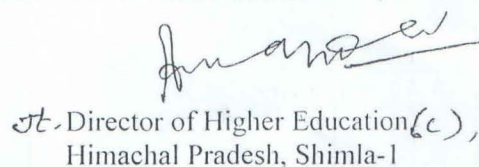 Jt. Director of Higher Education (C),
Himachal Pradesh, Shimla-1